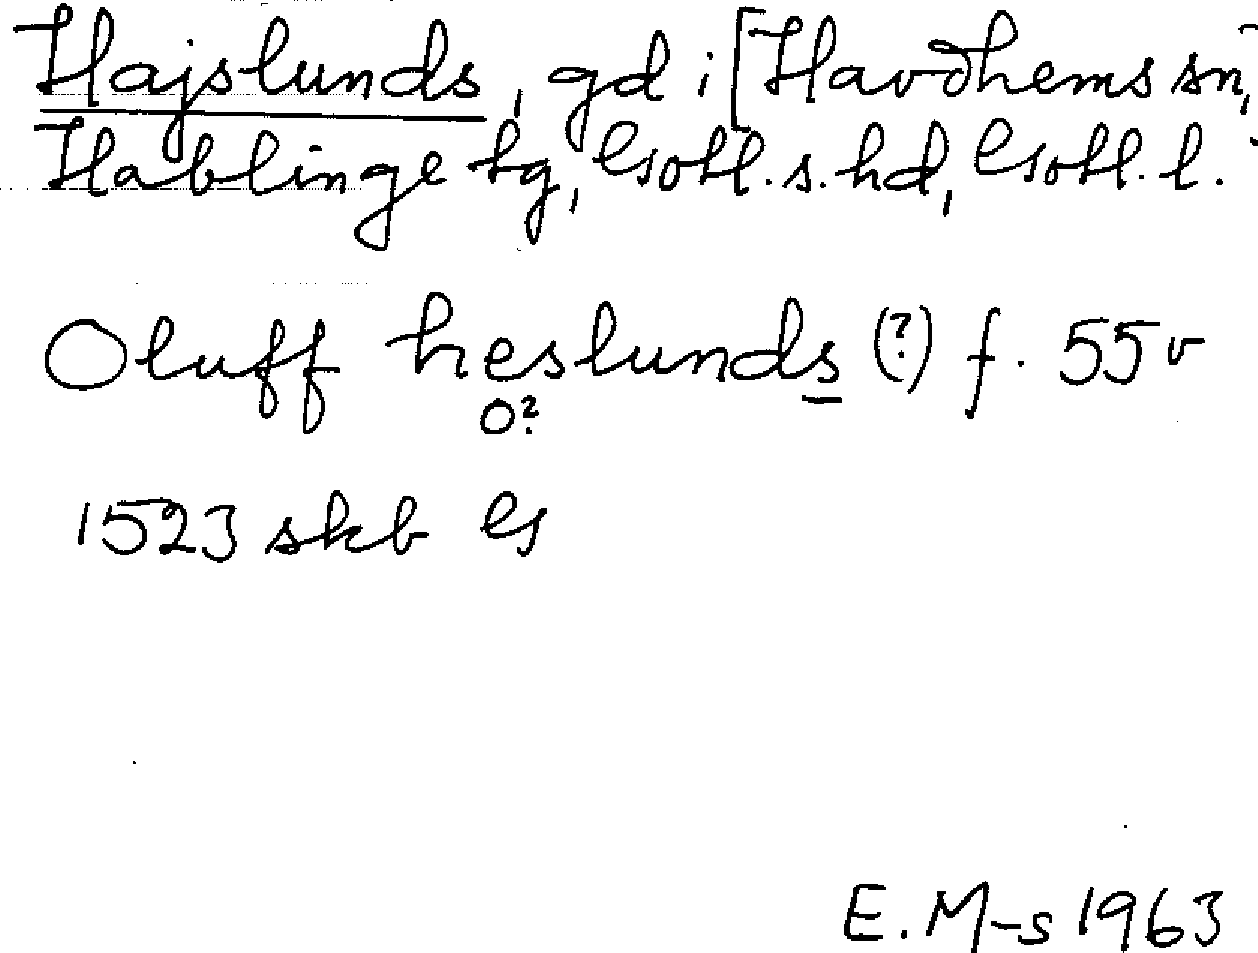 Hajslunds, gd i [Havdhems sn,]
Hablinge tg, Gotl. s. hd, Gotl. l.
Oluff heslunds (?) f. 55 v
o?
1523 skb G
E. M-s 1963